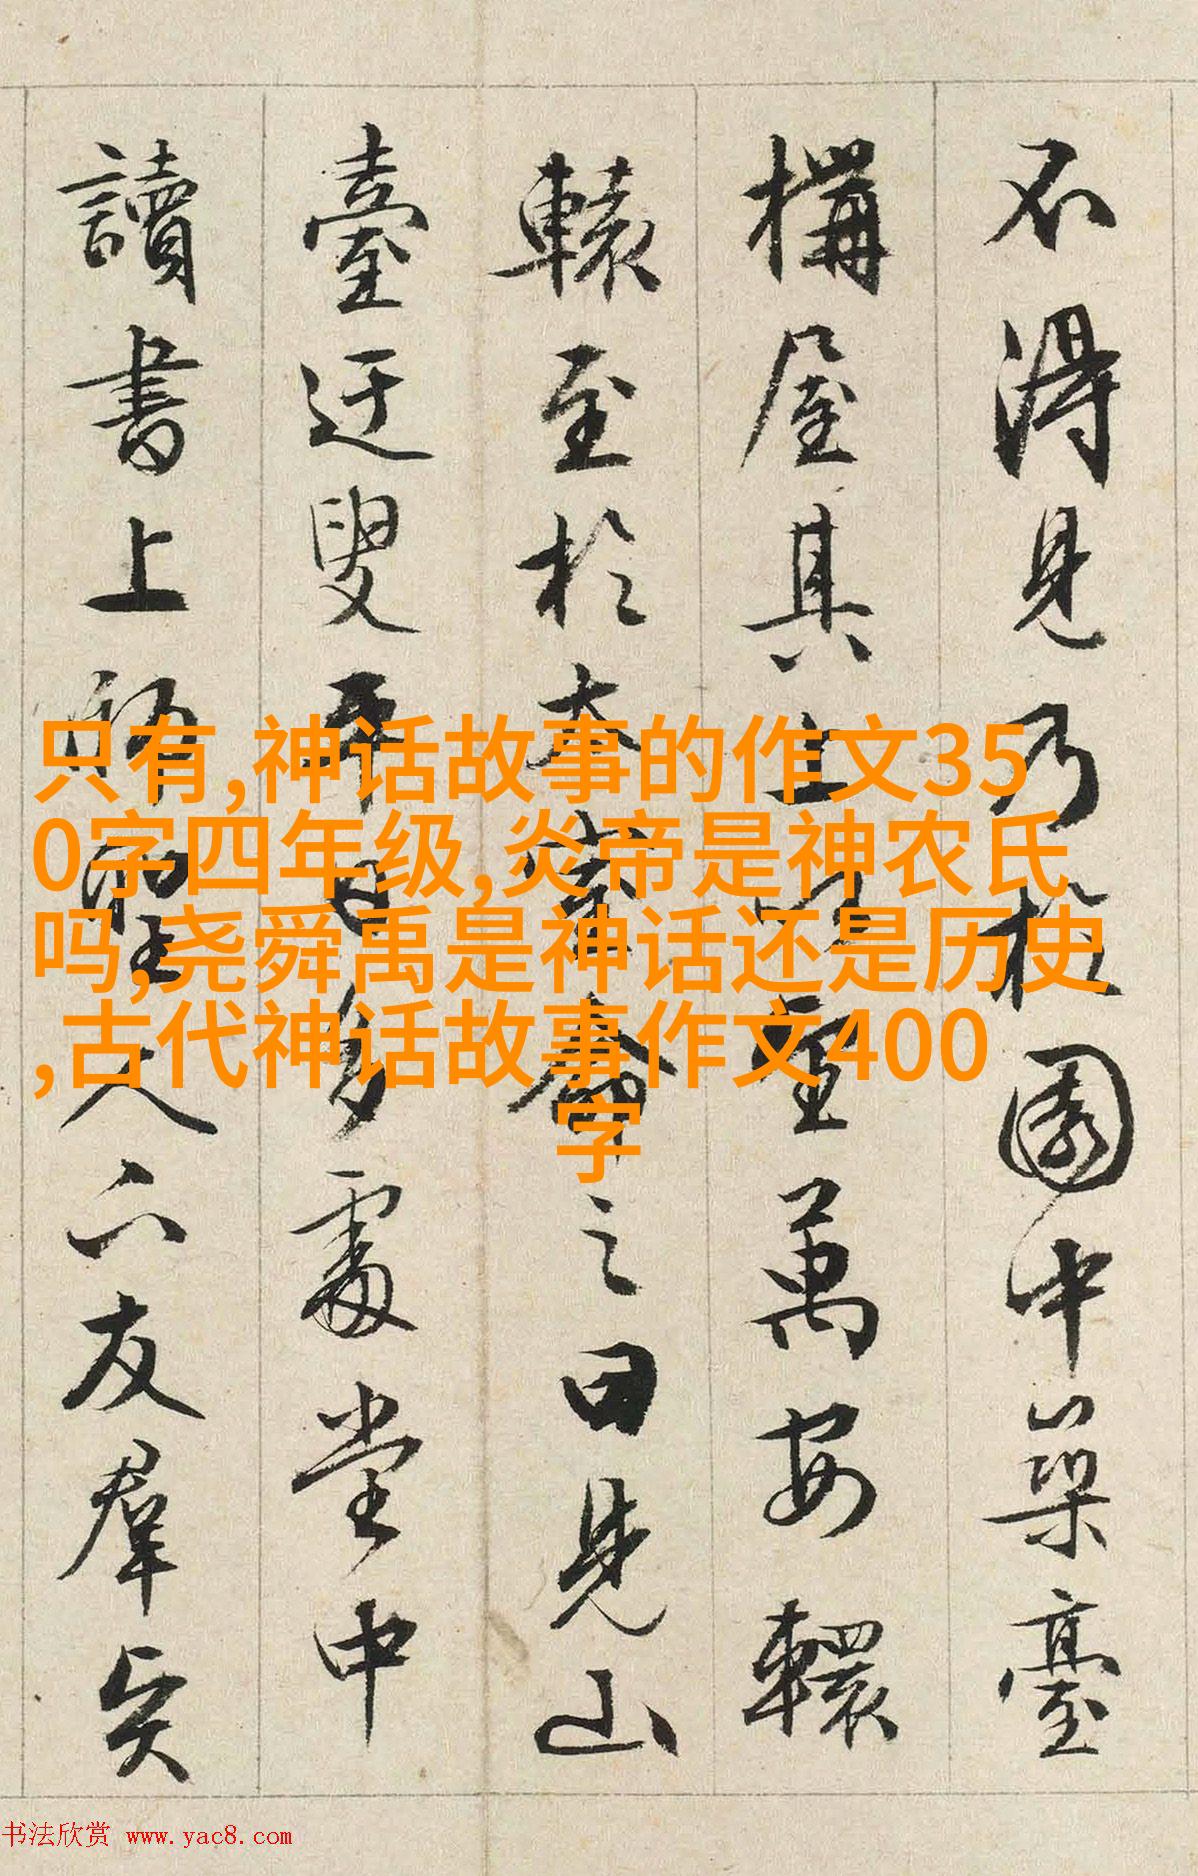 不得見乃於園中築臺
構屋其上以望萬安轘
轅至於太室命之曰見山
臺迂叟平日多處堂中
讀書上師聖人下友羣賢
只有,神话故事的作文35
0字四年级,炎帝是神农氏
吗,尧舜禹是神话还是历史
,古代神话故事作文400
字
书法欣赏 www.yac8.com